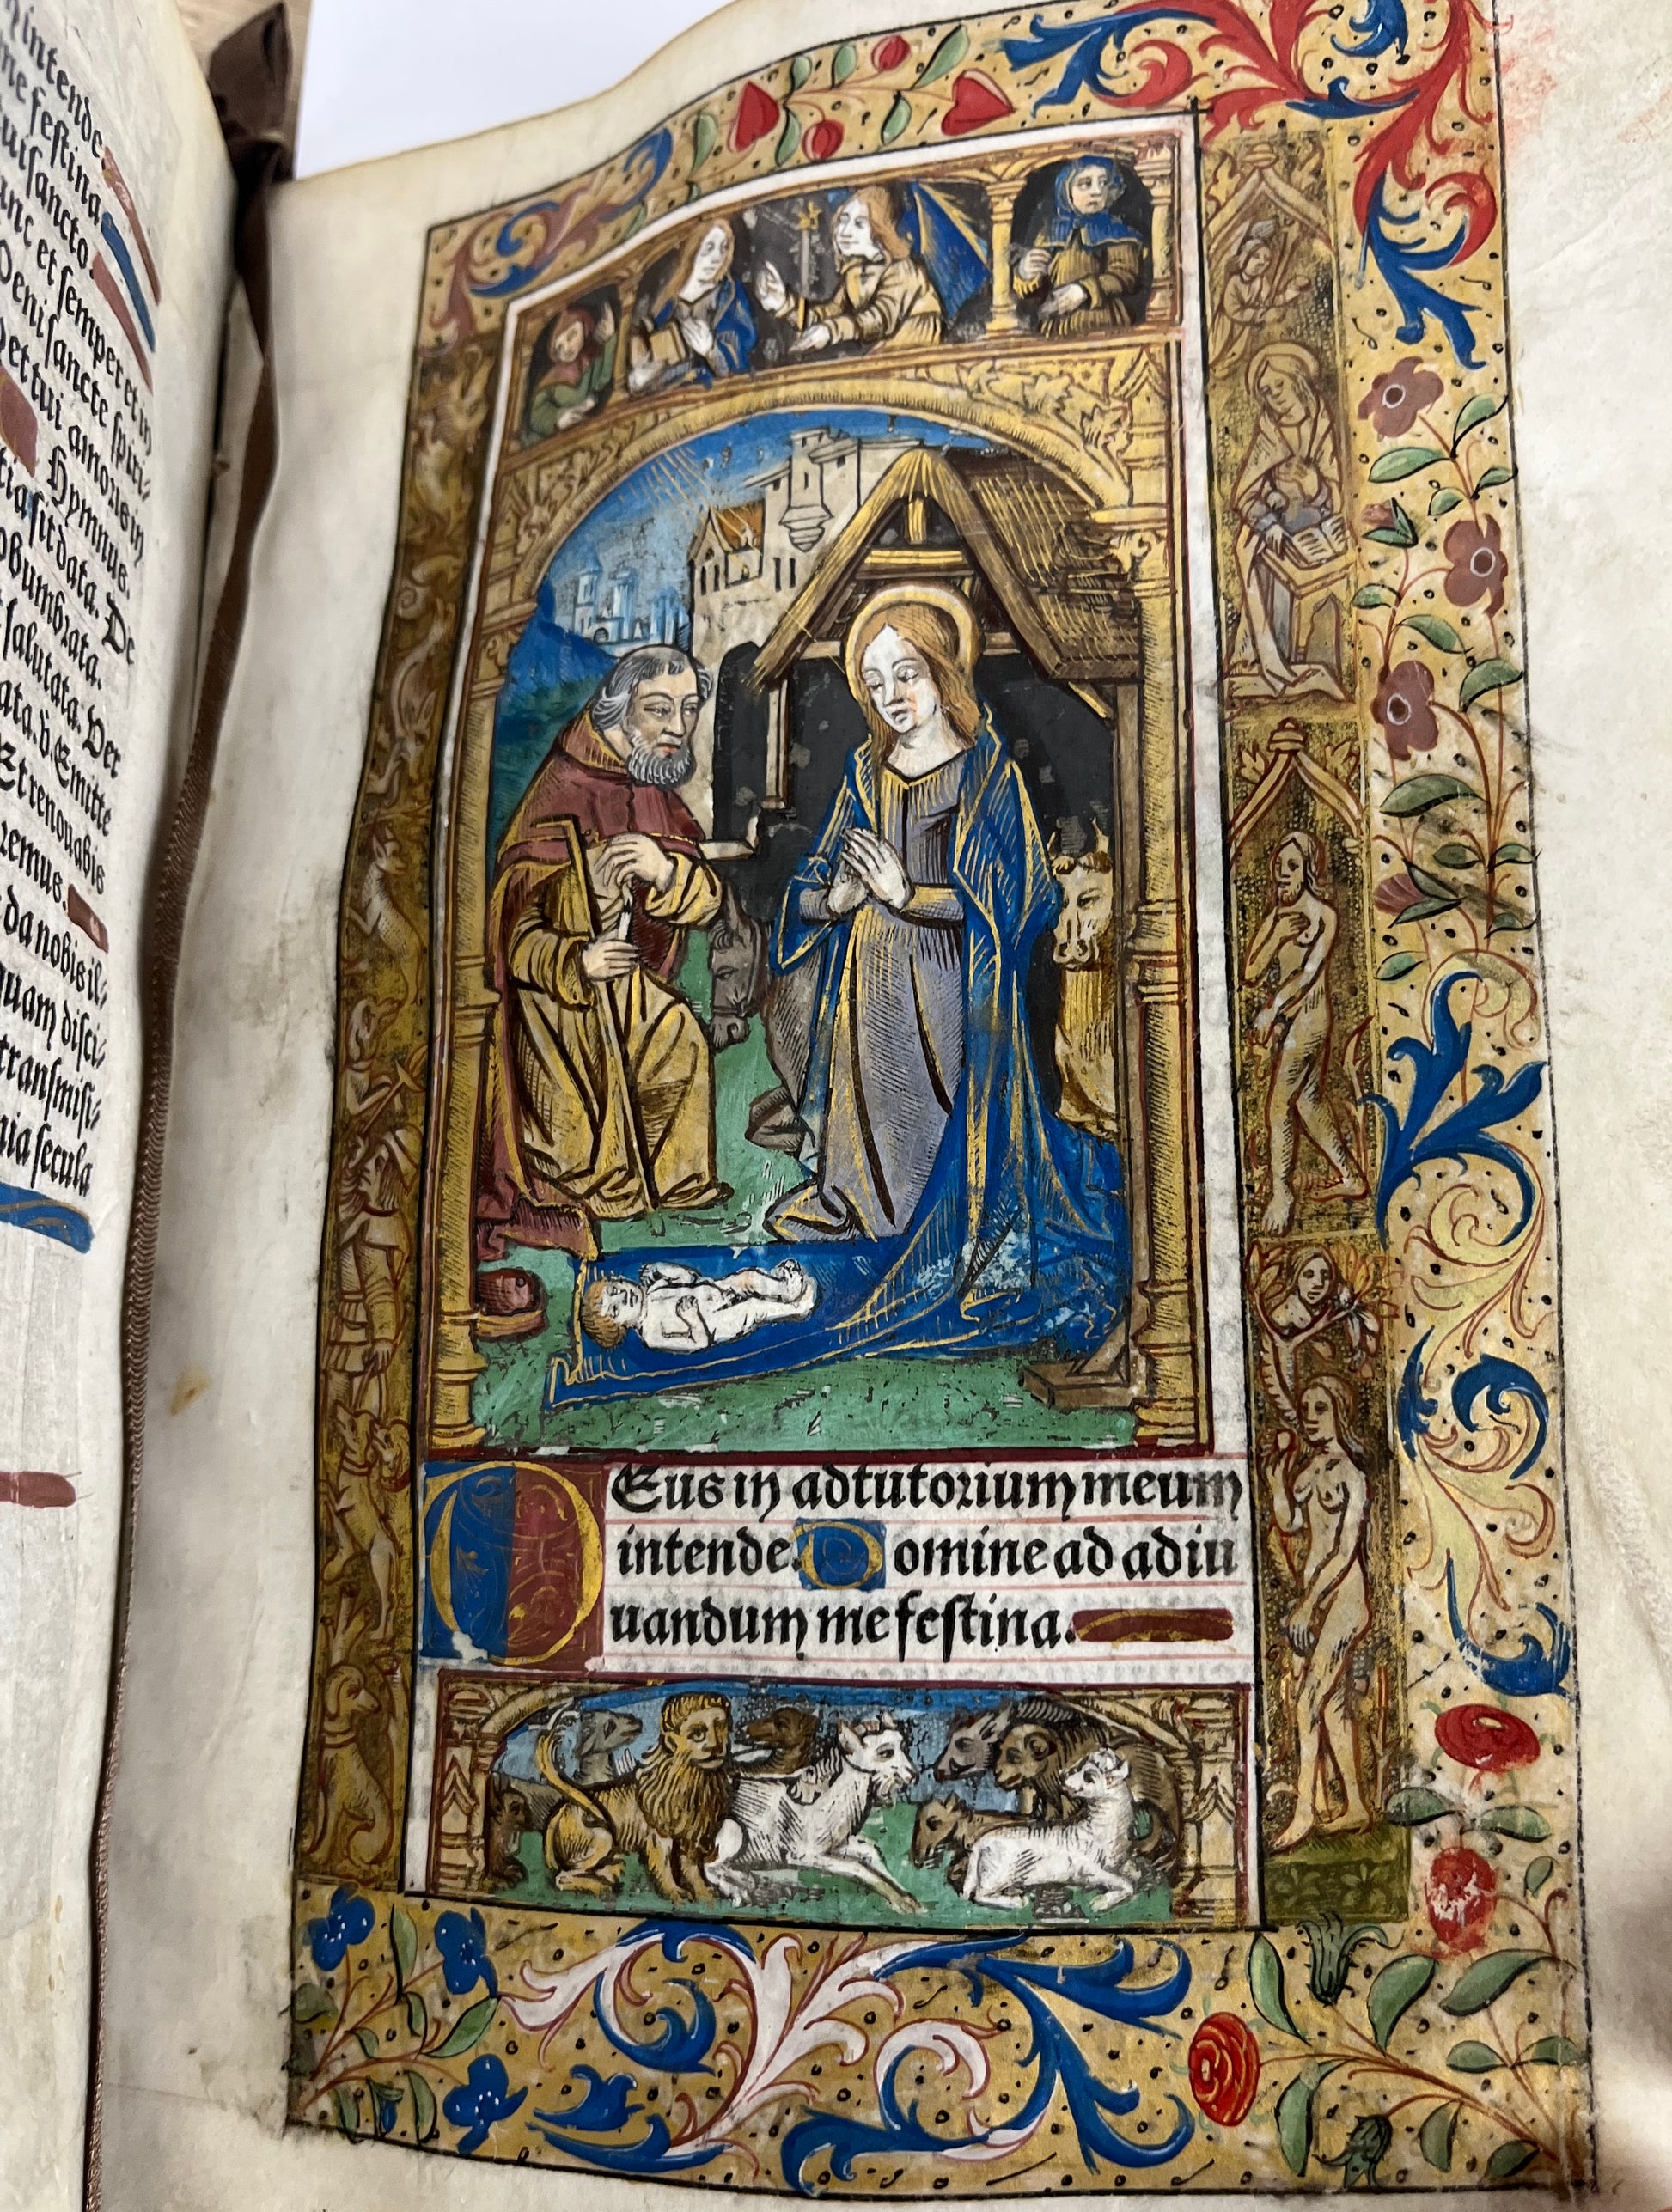 intende
me festina.
sancto.
unc et semper et in
Veni sancte spiri⸗
tui amoris in
Hymnus.
sit data. De
obumbrata.
salutata. Per
ata. v. Emitte
Et renouabis
remus.
da nobis il⸗
quam disci⸗
transmisi⸗
nia secula
DEus in adiutorium meum
intende. Domine ad adiu
uandum me festina.